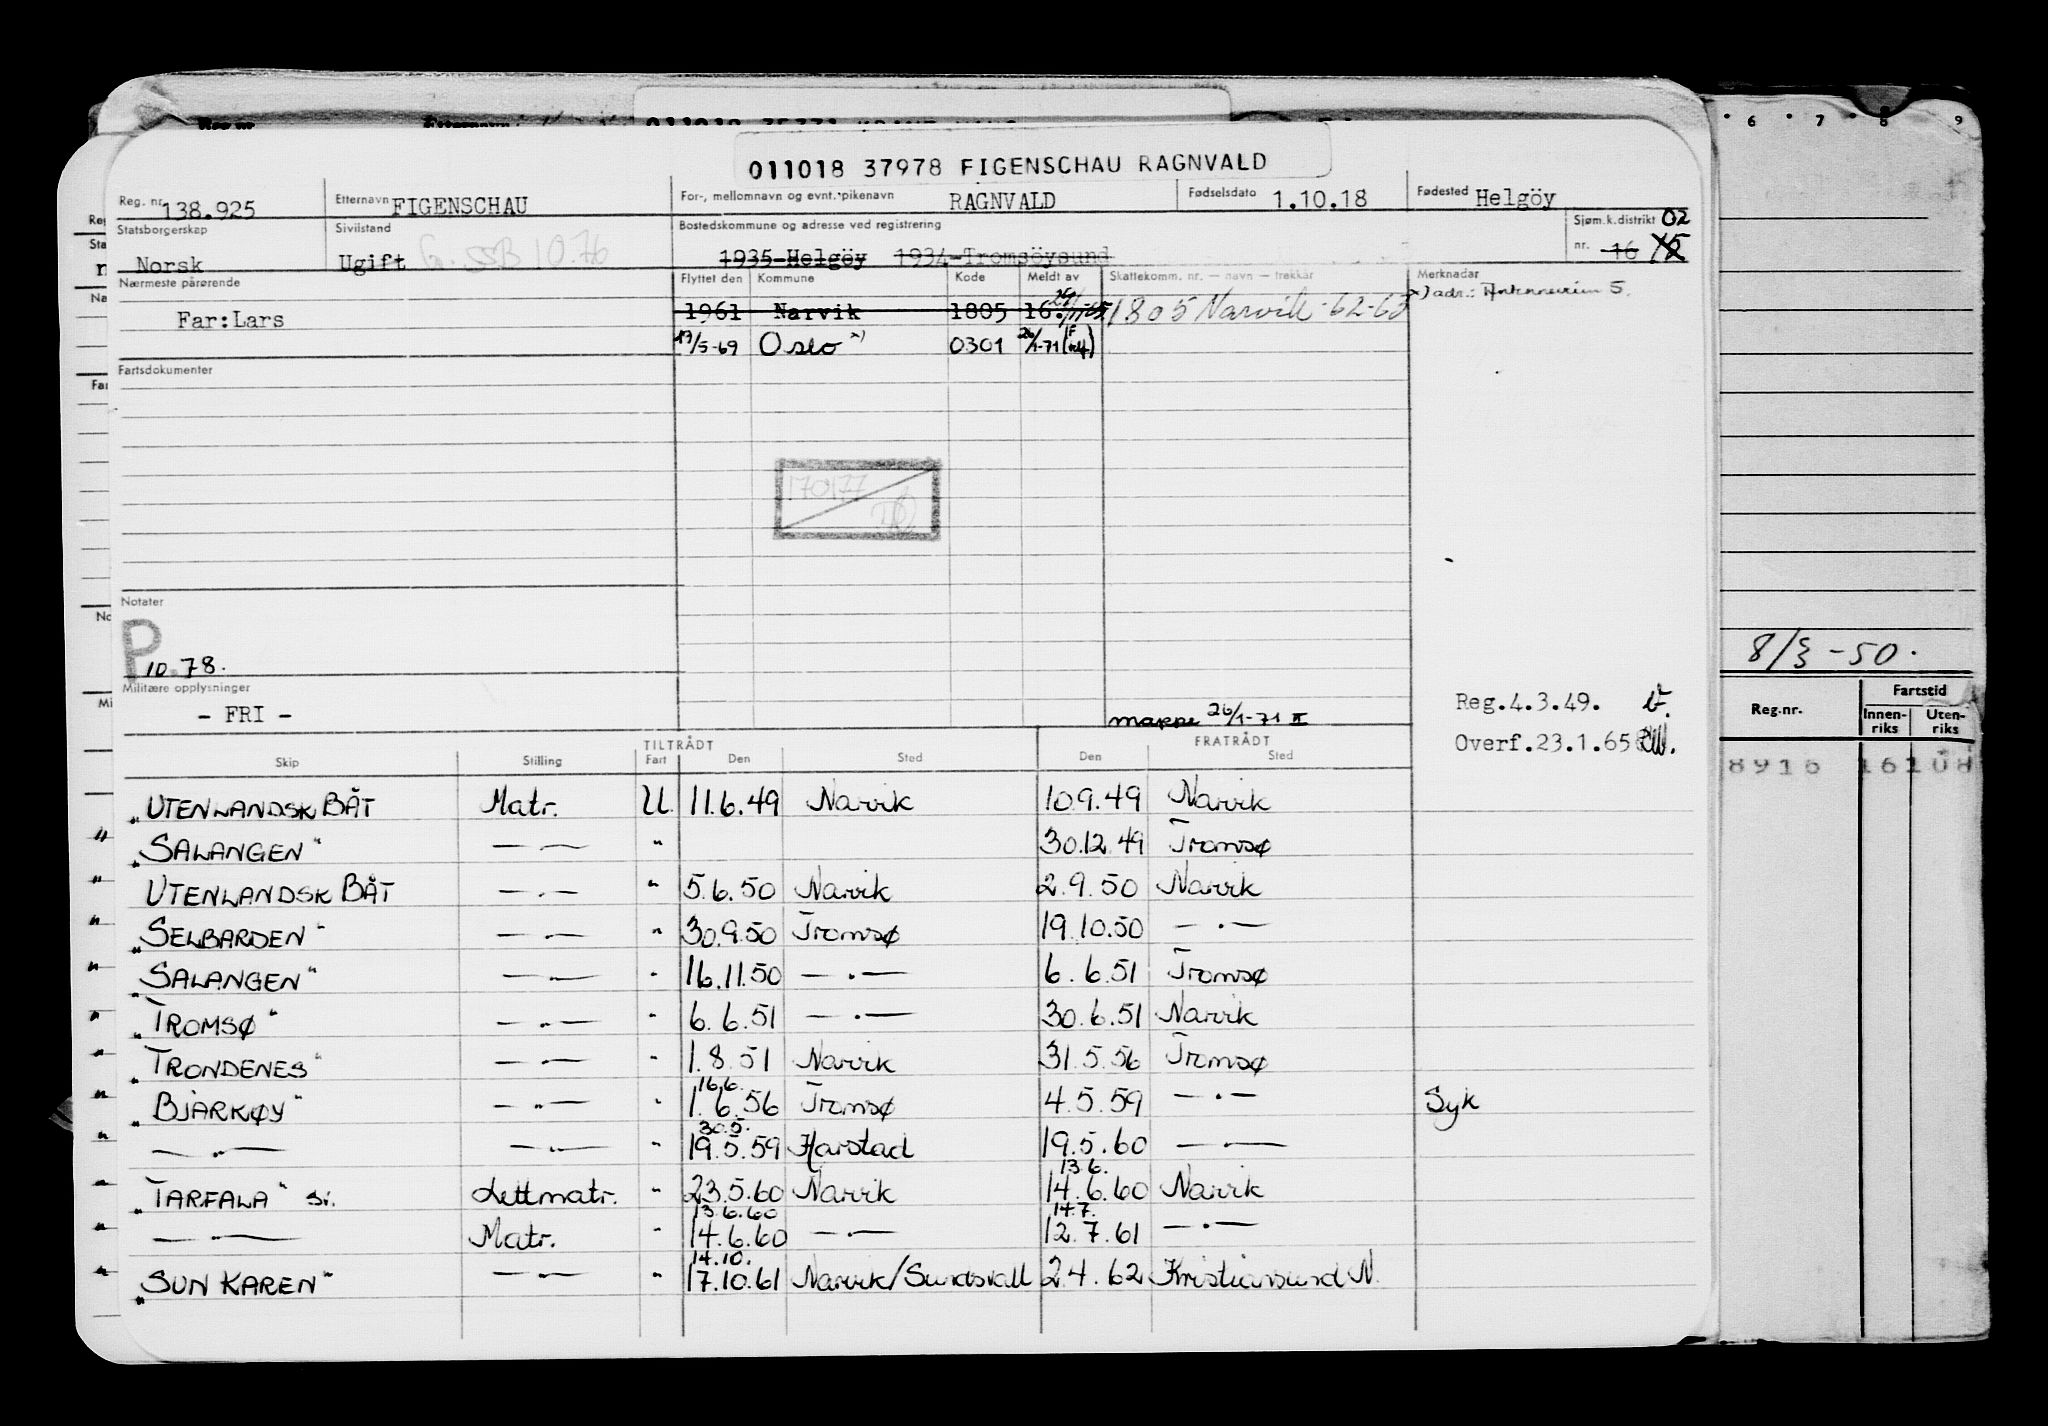 011018 37978 FIGENSCHAU RAGNVALD
Reg. nr. 138.925 Etternavn FIGENSCHAU For-, mellomnavn og evnt. pikenavn RAGNVALD Fødselsdato 1.10.18 Fødested Helgöy
Statsborgerskap Norsk Sivilstand Ugift G. SSB 10.76 Bostedskommune og adresse ved registrering 1935-Helgöy 1934-Tromsöysund Sjøm.k.distrikt nr. 16 15 02
Nærmeste pårørende Flyttet den Kommune Kode Meldt av Skattekomm. nr. — navn — trekkår Merknader
Far: Lars 1961 Narvik 1805 16. 1805 Narvik-62-63 x) adr.: 5.
19/5-69 Oslo x) 0301 26/1-71
Fartsdokumenter
170177
Notater
P 10.78.
Militære opplysninger
- FRI -
mappe 26/1-71 II
Reg.4.3.49.
Overf.23.1.65
TILTRÅDT FRATRÅDT
Skip Stilling Fart Den Sted Den Sted
„UTENLANDSK BÅT Matr. U. 11.6.49 Narvik 10.9.49 Narvik
„SALANGEN" —.— " 30.12.49 Tromsø
UTENLANDSK BÅT —.— " 5.6.50 Narvik 2.9.50 Narvik
„SELBARDEN" —.— " 30.9.50 Tromsø 19.10.50 —.—
„SALANGEN" —.— " 16.11.50 —.— 6.6.51 Tromsø
„TROMSØ" —.— " 6.6.51 —.— 30.6.51 Narvik
„TRONDENES" —.— " 1.8.51 Narvik 31.5.56 Tromsø
16.6.
„BJARKØY" —.— " 1.6.56 Tromsø 4.5.59 —.— Syk
30.5.
—.— —.— " 19.5.59 Harstad 19.5.60 —.—
13.6.
„TARFALA" sv. Lettmatr. " 23.5.60 Narvik 14.6.60 Narvik
13.6.60 14.7.
—.— Matr. " 14.6.60 —.— 12.7.61 —.—
14.10.
„SUN KAREN" —.— " 17.10.61 Narvik/Sundsvall 2.4.62 Kristiansund N.
6 7 8 9
8/3-50.
Reg.nr. Fartstid
Innen-riks Uten-riks
8916 16108